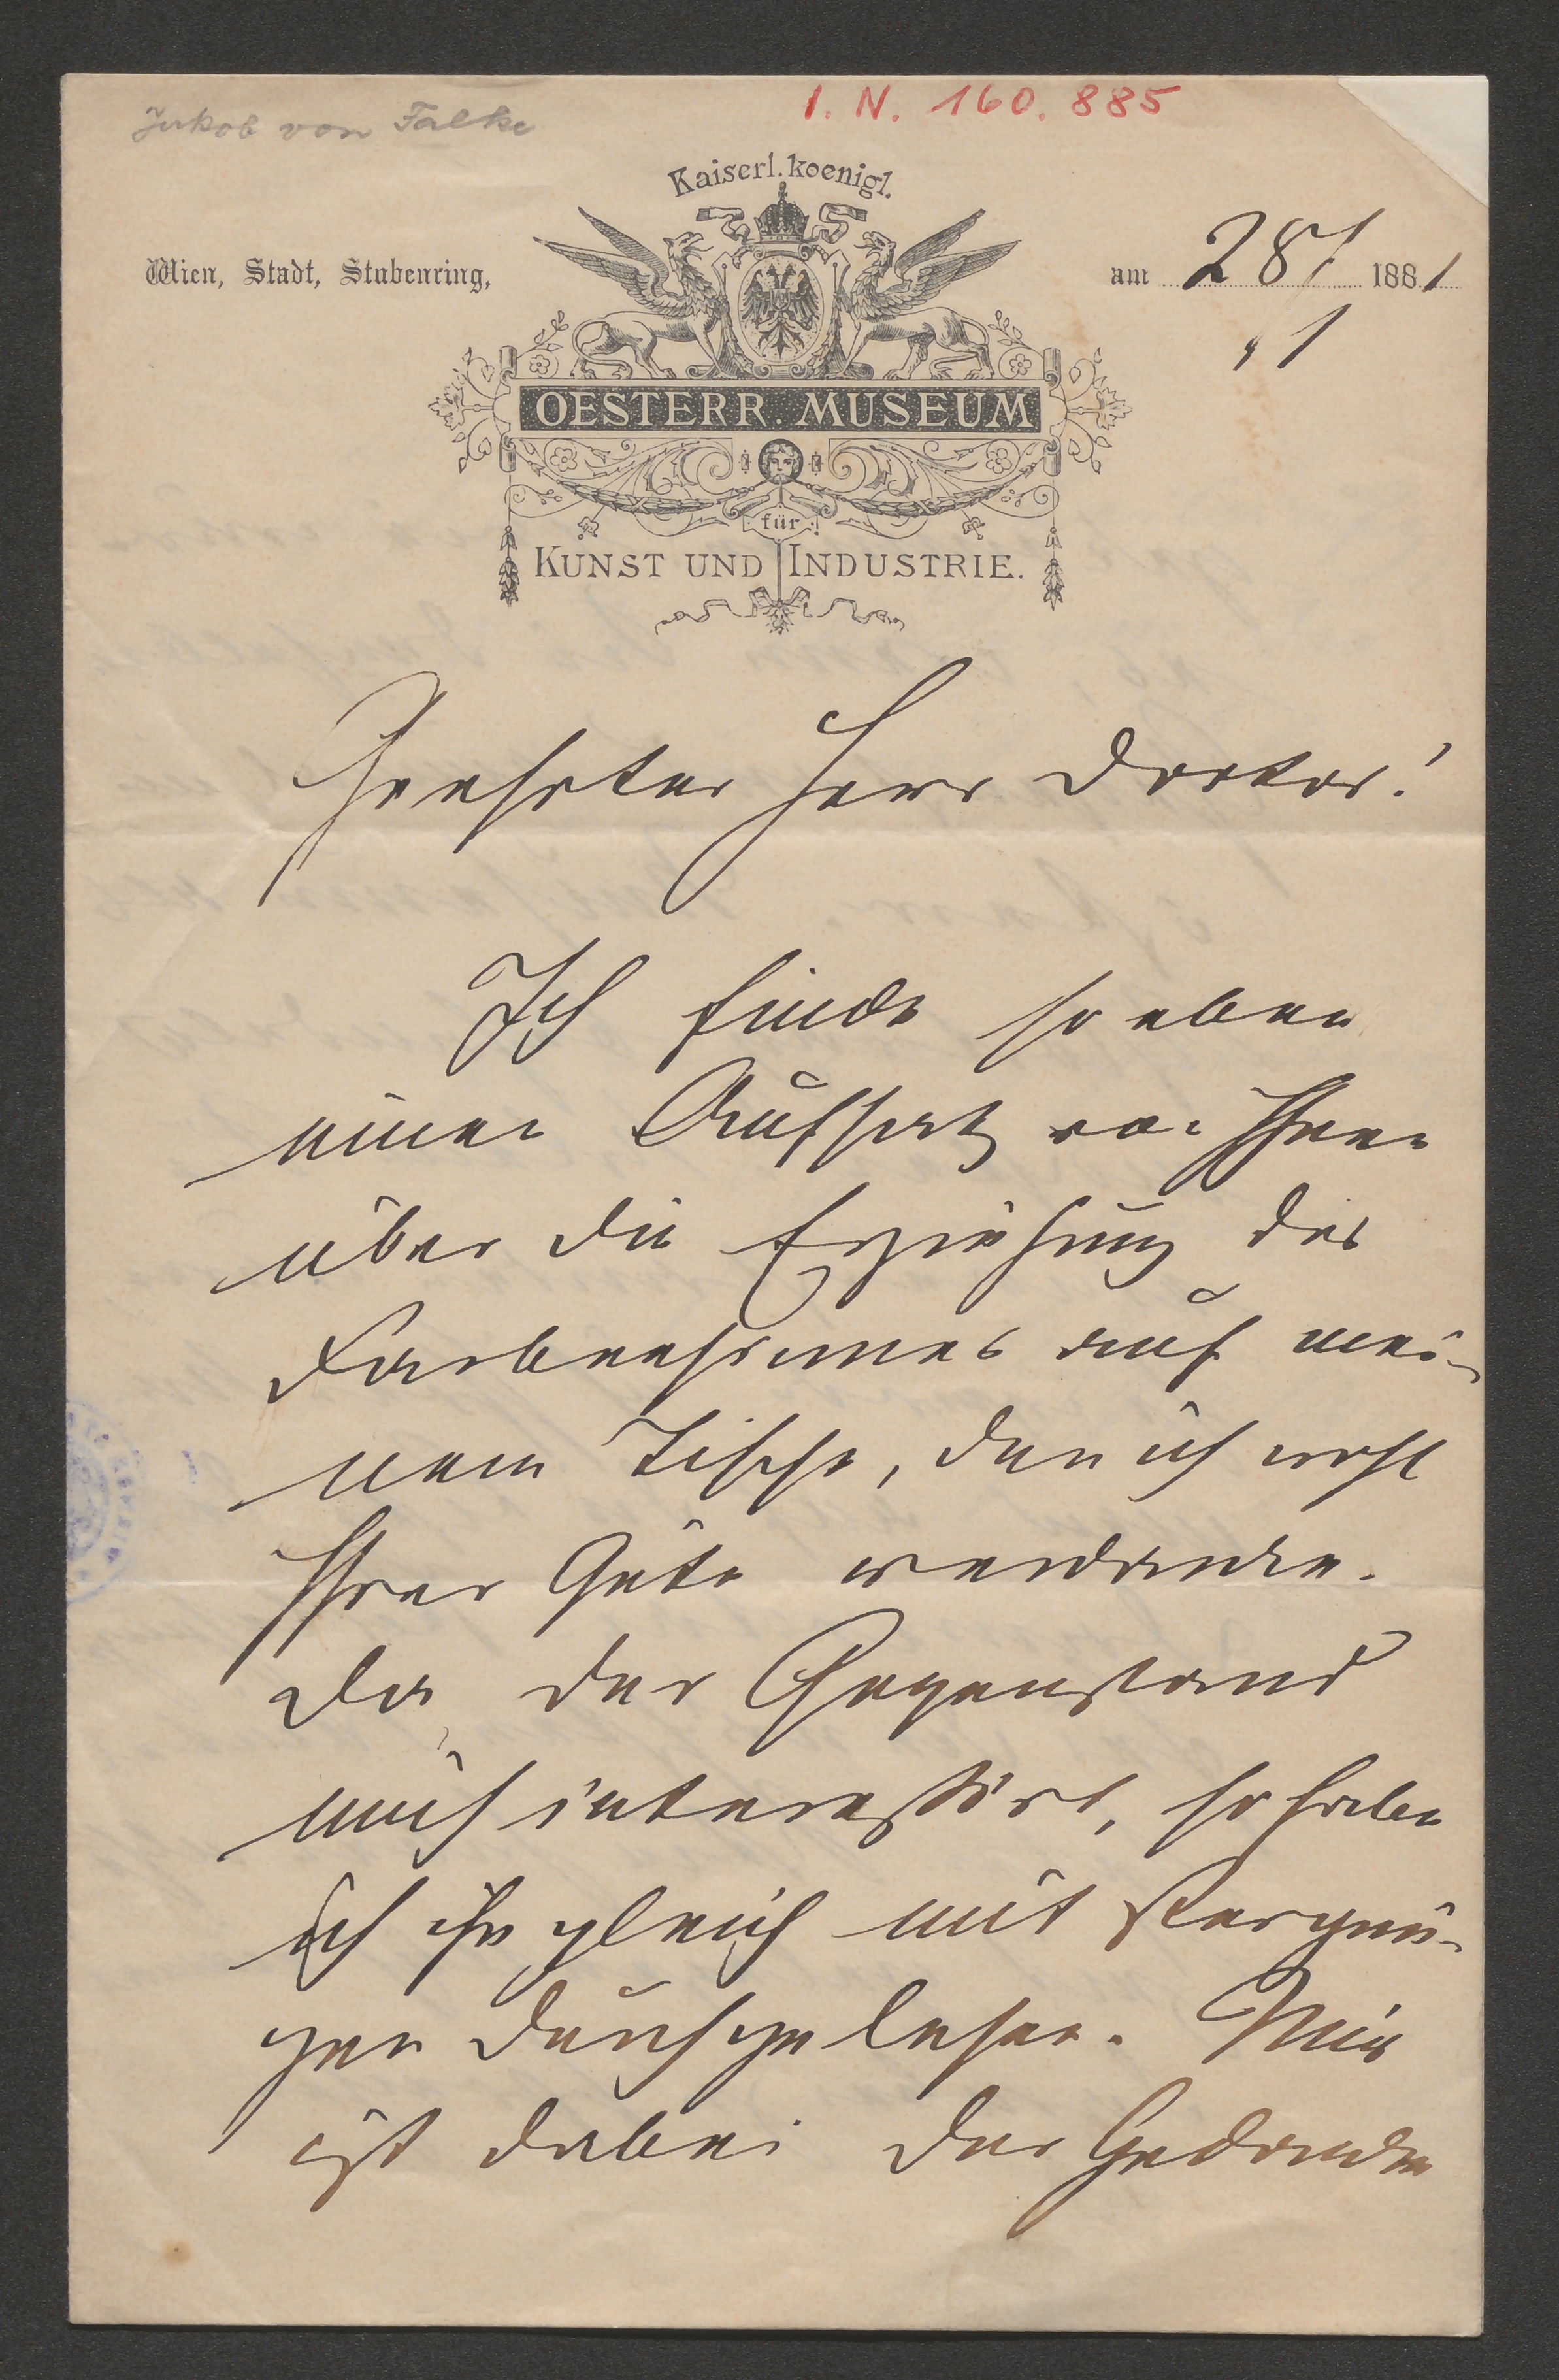 Jakob von Falke
I. N. 160.885
Kaiserl. koenigl.
Wien, Stadt, Stubenring,
am 28/ 1881
1
OESTERR. MUSEUM
für
KUNST UND INDUSTRIE.
Geehrter Herr Doctor!
Ich finde so eben
einen Aufsatz von Ihnen
über die Erziehung des
Farbensinnes auf mei-
nem Tische, den ich wohl
Ihrer Güte verdanke.
Da der Gegenstand
mich interessirt, so habe
ich ihn gleich mit Vergnü-
gen durchgelesen. Mir
ist dabei der Gedanke